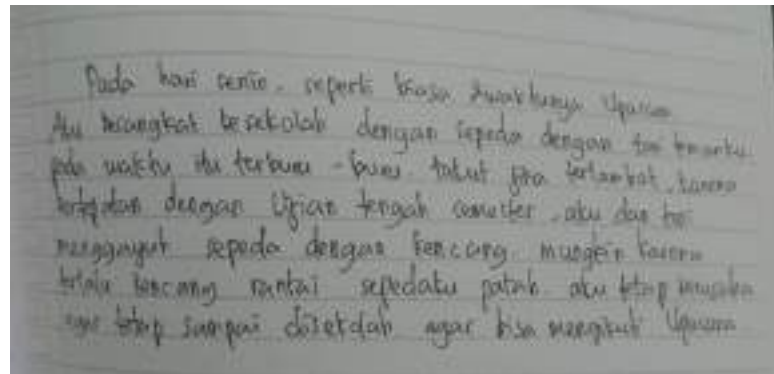 Pada hari senin. seperti biasa waktunya Upacara
Aku berangkat kesekolah dengan sepeda dengan temanku
pada waktu itu terburu - buru. takut jika terlambat, karena
bertepatan dengan Ujian tengah semester. aku dan
menggayuh sepeda dengan kencang. mungkin karena
terlalu kencang rantai sepedaku patah. aku tetap berusaha
agar tetap sampai disekolah agar bisa mengikuti Upacara